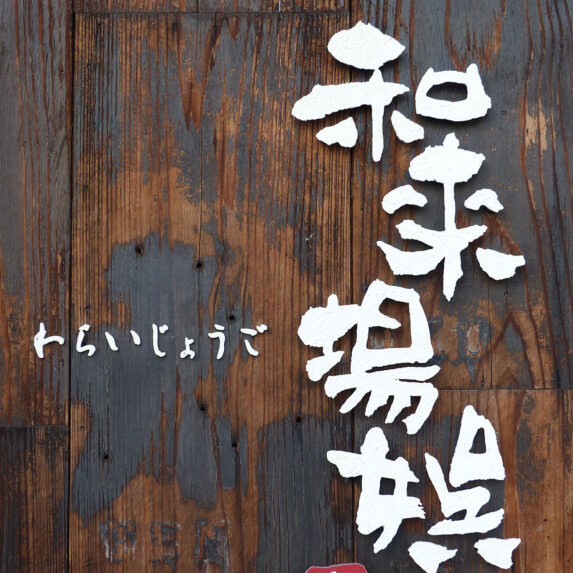 和来場娯
わらいじょうご